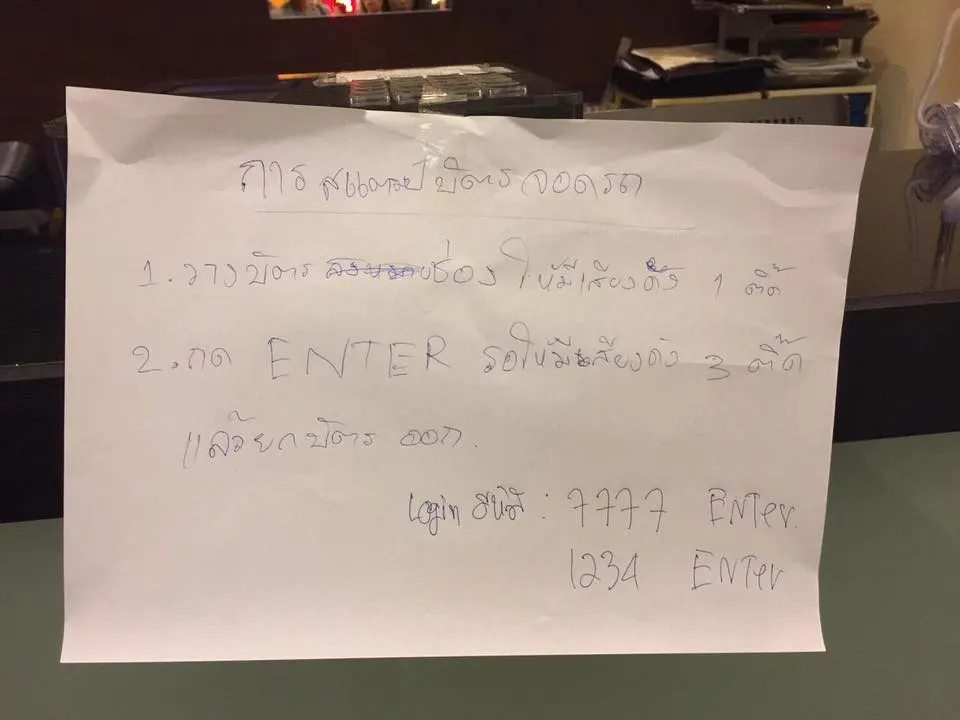 การ สแตมป์ บัตร จอดรถ
1. วางบัตร ช่อง ให้มีเสียงดัง 1 ติ๊ด
2. กด ENTER รอให้มีเสียงดัง 3 ติ๊ด
แล้วยกบัตร ออก.
Login : 7777 ENTer.
1234 ENTer